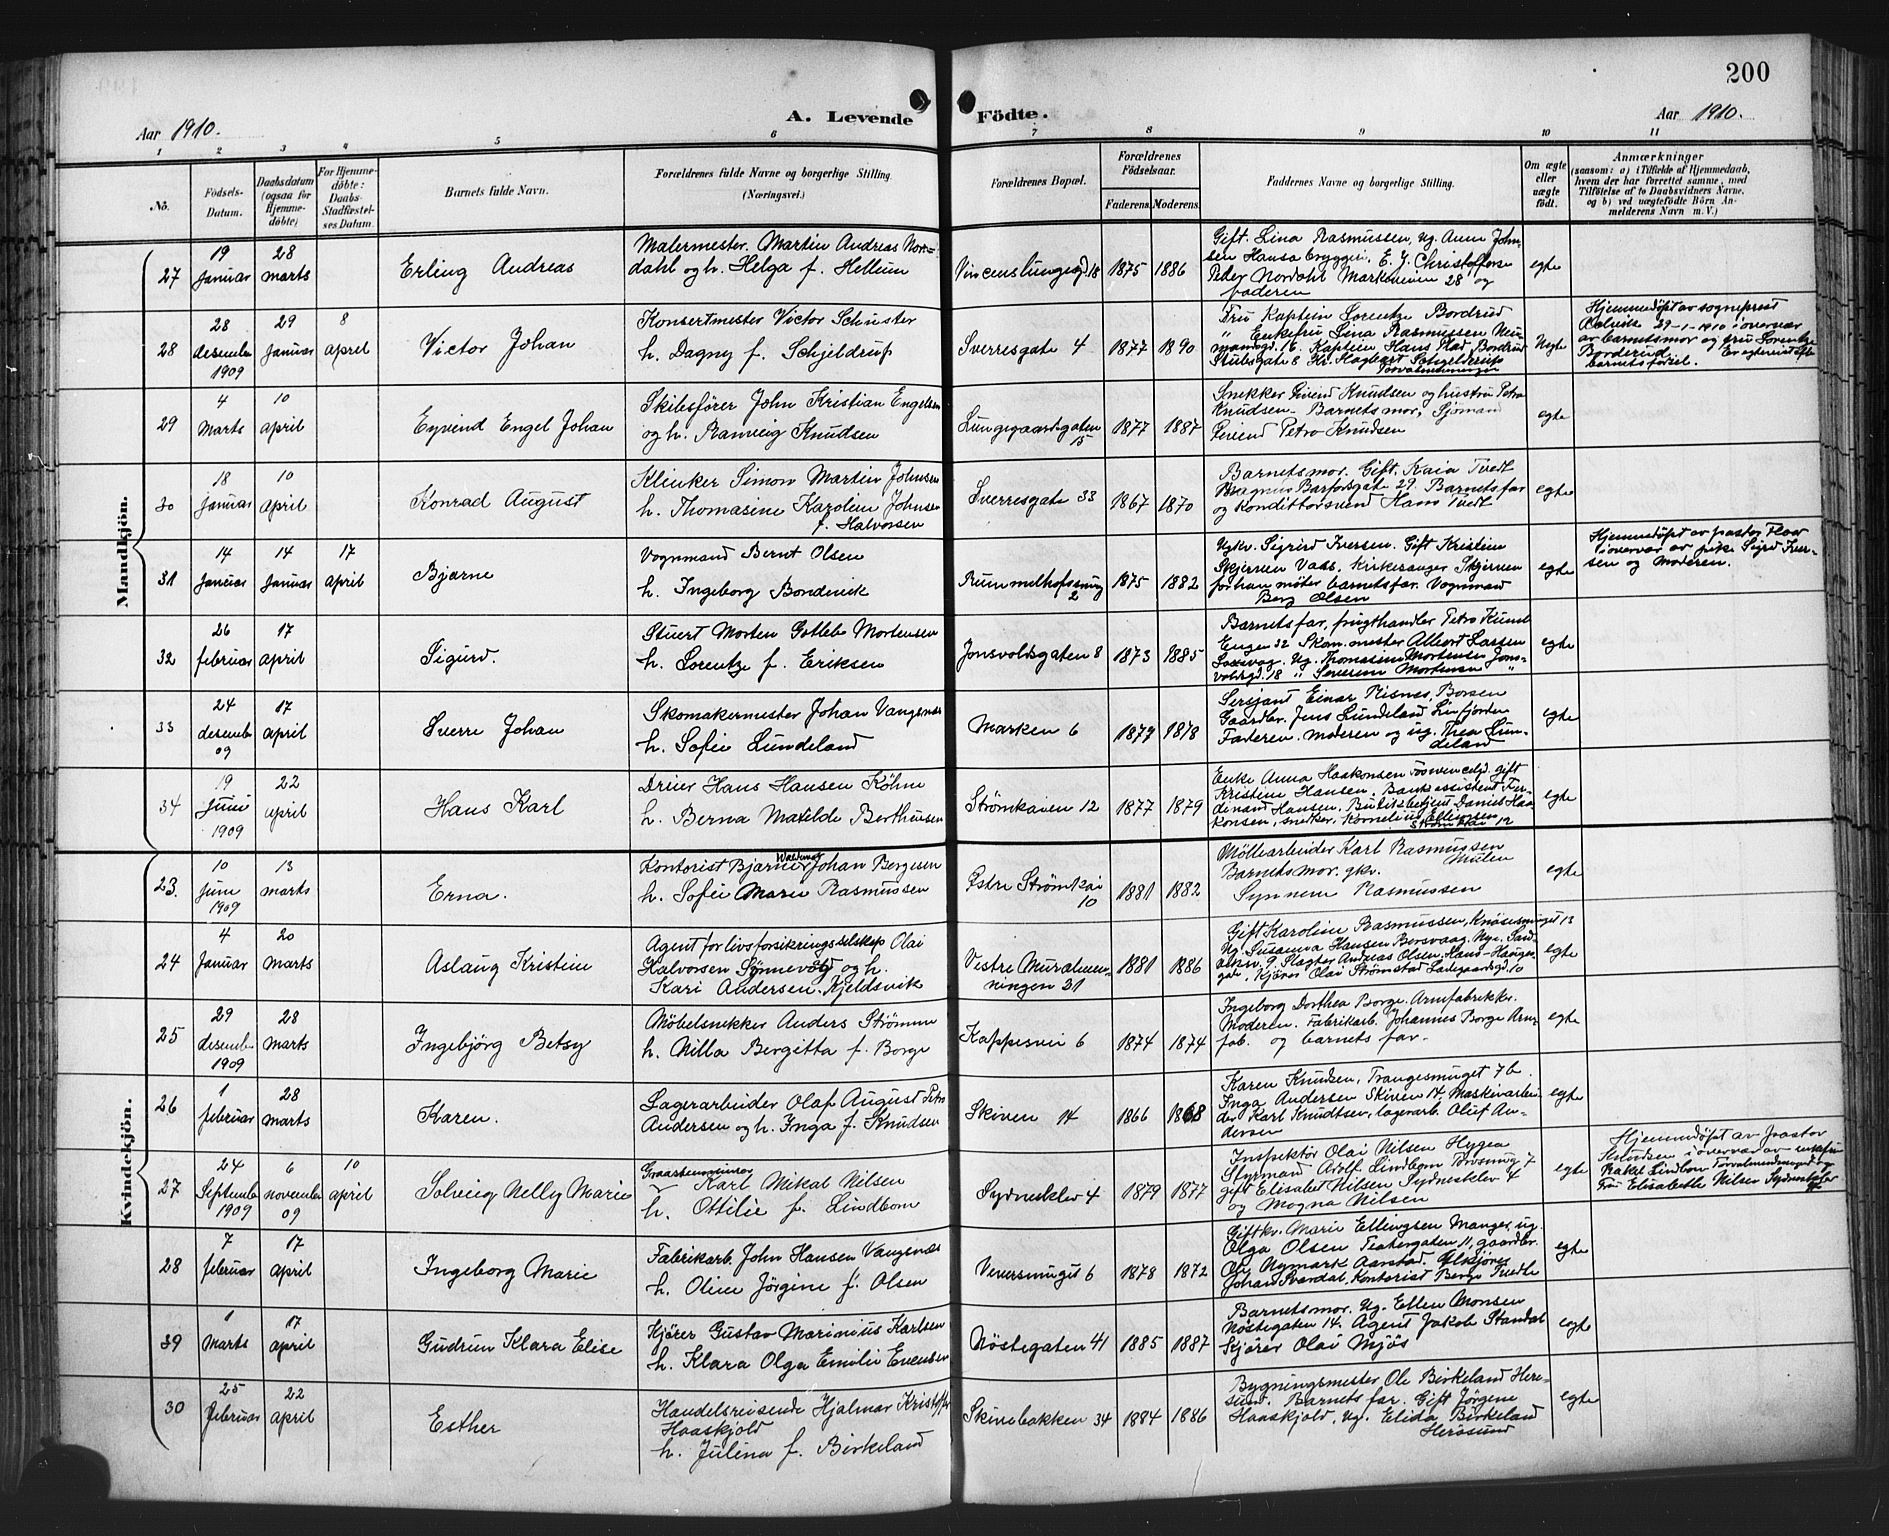 200
Aar 1910.
A. Levende Födte.
Aar 1910.
1 2 3 4 5 6 7 8 9 10 11
No.
Födsels-Datum.
Daabsdatum (ogsaa for Hjemmedöbte)
For Hjemmedöbte: Daabs-Stadfæstelses Datum.
Barnets fulde Navn.
Forældrenes fulde Navne og borgerlige Stilling. (Næringsvei.)
Forældrenes Bopæl.
Forældrenes Födselsaar.
Faderens. Moderens.
Faddernes Navne og borgerlige Stilling.
Om ægte eller uægte födt.
Anmærkninger
(saasom: a) i Tilfælde af Hjemmedaab, hvem der har forrettet samme, med Tilföielse af to Daabsvidners Navne, og b) ved uægtefödte Börn Anmelderens Navn m. V.)
Mandkjön.
27
19 Januar
28 marts
Erling Andreas
Malermester Martin Andreas Nordahl og h. Helga f. Hellum
18
1875 1886
Gift. Lina Rasmussen, ug. Anna Johnsen Hansa bryggeri, E. J. Christoffersen
Peter Nordahl Markeveien 28 og faderen
egte
28
28 desember 1909
29 Januar
8 april
Victor Johan
Konsertmester Victor Schuster
h. Dagny f. Schjeldrup
Sverresgate 4
1877 1890
Fru Kaptein Lorentze Bordrud
" Enkefru Lina Rasmussen
Uegte
Hjemmedøpt av sogneprest
29-1-1910 i overvær
av barnets mor og fru Lorentze
29
4 Marts
10 april
Eyvind Engel Johan
Skibsfører John Kristian Engelsen
og h. Ranveig Knudsen
Lungegaardsgaten 15
1877 1887
Snekker Eivind Knudsen og hustru Petra
Knudsen. Barnets mor, Sjømand
Eivind Petro Knudsen
egte
30
18 Januar
10 april
Konrad August
Klinker Simon Martin Johnsen
h. Thomasine Karoline Johnsen
f. Halvorsen
Sverresgate 33
1867 1870
Barnets mor. Gift. Kaia Tvedt
Magnus Barforsgate 29. Barnets far
og Konditorsvend Hans Tvedt
egte
31
14 Januar
14 Januar
17 april
Bjarne
Vognmand Bernt Olsen
h. Ingeborg Bondevik
Rummelhofssmug 2
1875 1882
Ugkv. Sigrid Iversen. Gift Kristine
barnets far. Vognmand
Berg Olsen
egte
Hjemmedøpt av pastor Floor
i overvær av pike Sigrid Iversen og Moderen.
32
26 februar
17 april
Sigurd.
Stuert Morten Gotleb Mortensen
h. Lorentze f. Eriksen
Jonsvoldsgaten 8
1873 1885
Barnets far, frugthandler Petro Kund
Engen 32 Skom. mester Albert Lassen
Ug. Thomasine Mortensen Jonsvoldsgd. 18 " Severine Mortensen "
egte
33
24 desember 09
17 april
Sverre Johan
Skomakermester Johan Vangsnæs
h. Sofie Lundeland
Marken 6
1879 1878
Sersjant Einar Risnes, Borsen
Gaardbr. Jens Lundeland Linfjorden
Faderen. Moderen og ug. Thea Lundeland
egte
34
19 Juni 1909
22 april
Hans Karl
Dreier Hans Hansen Köhne
h. Berna Matilde Berthusen
Strömkaien 12
1877 1879
Enke Anna Haakonsen gift
Kristine Hansen. Banksassistent Ferdinand Hansen, Daniel Haakonsen, snekker, Kornelius Ellingsen
Strömkai 12
egte
Kvindekjön.
23.
10 Juni 1909
13 marts
Erna.
Kontorist Bjarne Waldemar Johan Bergesen
h. Sofie Marie Rasmussen
Østre Strömkai 10
1881 1882
Möllearbeider Karl Rasmussen
Mulen
Barnets mor. gkv.
Synneve Rasmussen
egte
24
4 Januar
20 Marts
Aslaug Kristine
Agent for livsforsikringsselskap Olai
Halvorsen og h.
Kari Andersen Kjeldsvik
Vestre Muralmenningen 21
1881 1886
Gift Karoline Rasmussen, Knösesmuget 13
Ug. Susanna Hansen
9. Slagter Andreas Olsen, Hans Haugesgate, Kjörer Olai Strömstad Ladegaardsgd. 10
egte
25
29 desember 1909
28 Marts
Ingebjörg Betsy
Møbelsnekker Anders Strömme
h. Nilla Bergitta f. Borge
Kappesvei 6
1874 1874
Ingeborg Dorthea Borge. Arnefabrikker.
Moderen. Fabrikarb. Johannes Borge Arnefab. og barnets far.
egte
26
1 februar
28 marts
Karen.
Lagerarbeider Olaf August Petro
Andersen og h. Inga f. Knudsen
Skiven 14
1866 1868
Karen Knudsen, Trangesmuget 7b.
Inga Andersen Skiven 14, Maskinarbeider Karl Knudtsen, lagerarb. Oluf Andersen
egte
27
24 September 1909
6 november 09
10 april
Solveig Nelly Marie
Graastensminør Karl Mikal Nilsen
h. Ottilie f. Lindbom
Sydnesklev 4
1879 1877
Inspektör Olai Nilsen Hygea
Styrmand Adolf Lindbom Torvsmug 7
gift Elisabet Nilsen Sydnesklev 4
og Magna Nilsen
egte
Hjemmedöpt av pastor
Knudsen i overvær av enkefru
Rakel Lindbom Torvalmenning og
Fru Elisabethe Nilsen Sydneskleven
28
7 februar
17 april
Ingeborg Marie
Fabrikarb. John Hansen Vangsnæs
h. Oline Jörgine f. Olsen
Veversmuget 6
1878 1872
Giftkv. Marie Ellingsen Manger, ug.
Olga Olsen Teatergaten 11, gaardbr.
Ole Nymark Aarstad. Ølkjörer
Johan Svardal, Kontorist Berge Tvedt
egte
29
1 Marts
17 april
Gudrun Klara Elise
Kjörer Gustav Marinius Karlsen
h. Klara Olga Emilie Evensen
Nöstegaten 41
1885 1887
Barnets mor. Ug. Ellen Monsen
Nöstegaten 14. Agent Jakob Standal
Kjörer Olai Mjös
egte
30
25 februar
22 april
Esther
Handelsreisende Hjalmar Kristoffer
Haaskjold
h. Julina f. Birkeland
Skivebakken 34
1884 1886
Bygningsmester Ole Birkeland Heresund. Barnets far. Gift Jørgine
Haaskjold, ug. Elida Birkeland
Herøsund
egte